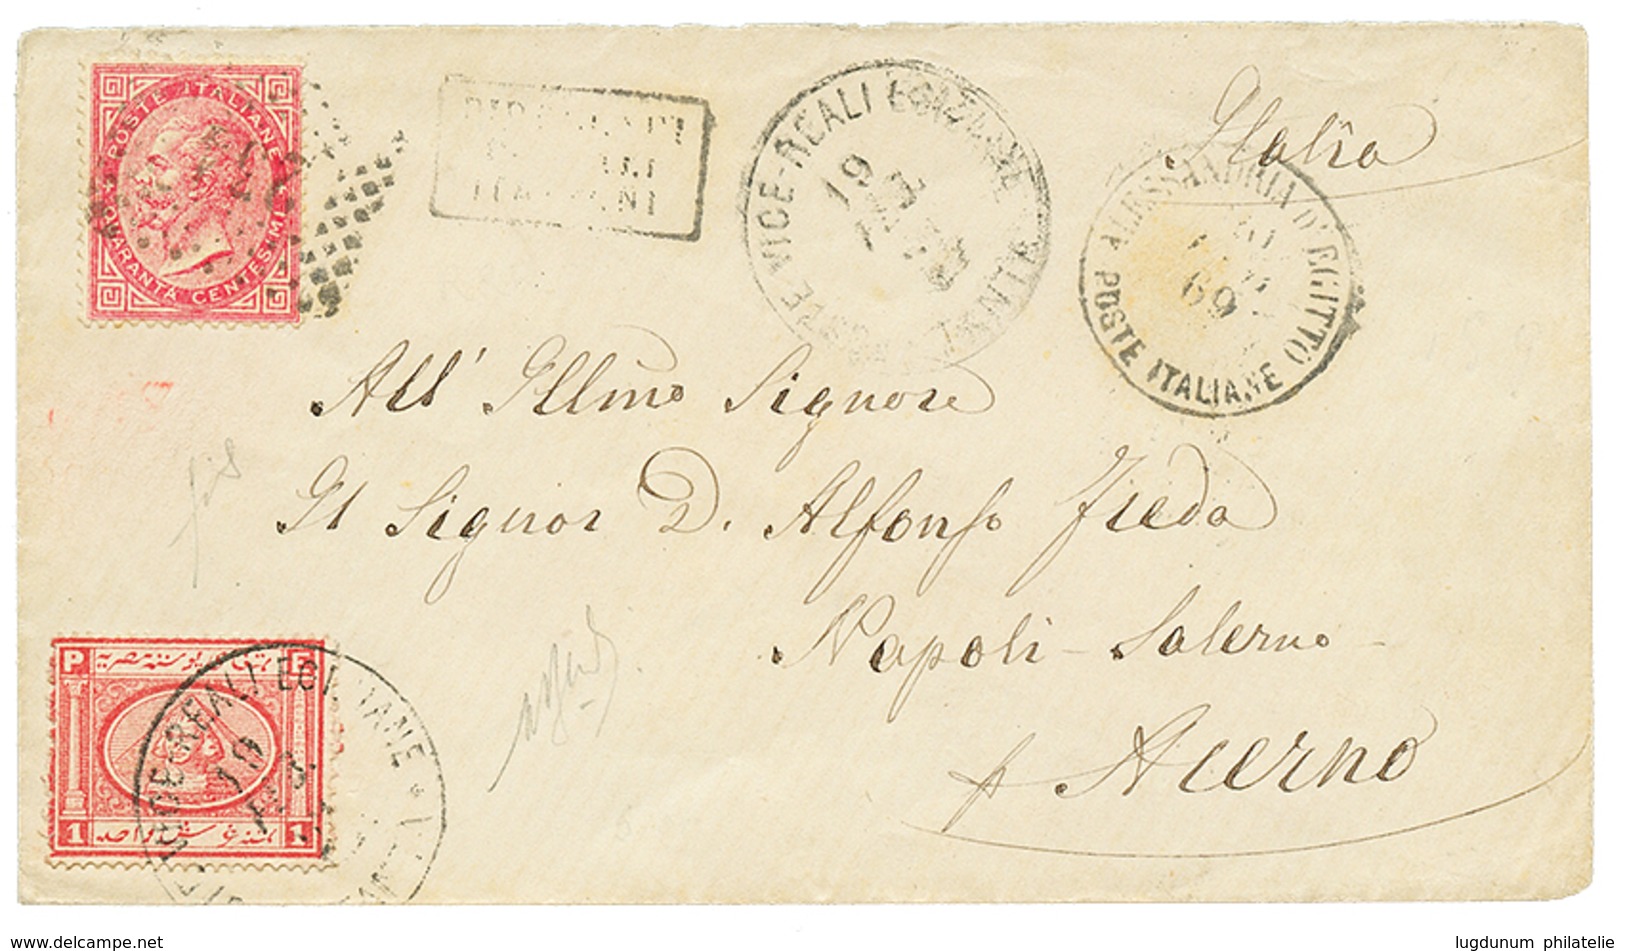 POSTE ITALIANE
QUARANTA CENTESIMI
234
PIROSCAFI
ITALIANI
POSTE VICE-REALI EGIZIANE
19
ALESSANDRIA D'EGITTO
69
POSTE ITALIANE
Italia
All' Illmo Signore
Il Signor D. Alfonso Freda
Napoli-Salerno-
p Acerno
P E
بوسته مصريه
1 1
غرش واحد
VICE-REALI EGIZIANE
19
www.delcampe.net
lugdunum philatelie